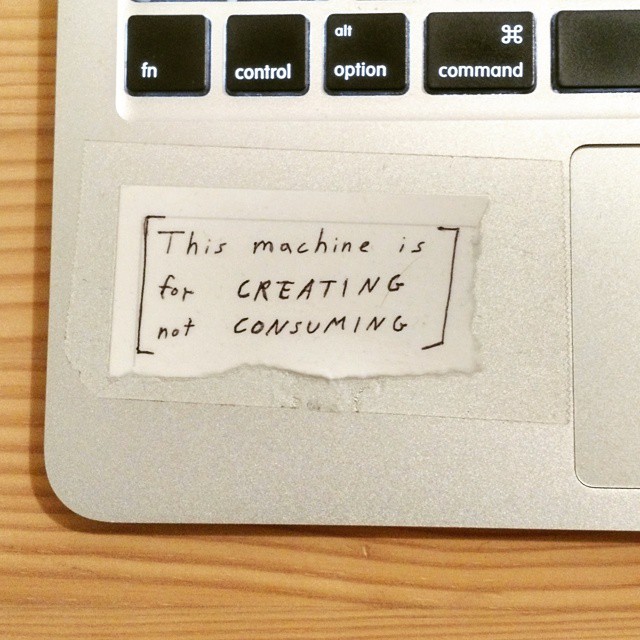 alt ⌘
fn control option command
[This machine is
for CREATING
not CONSUMING]